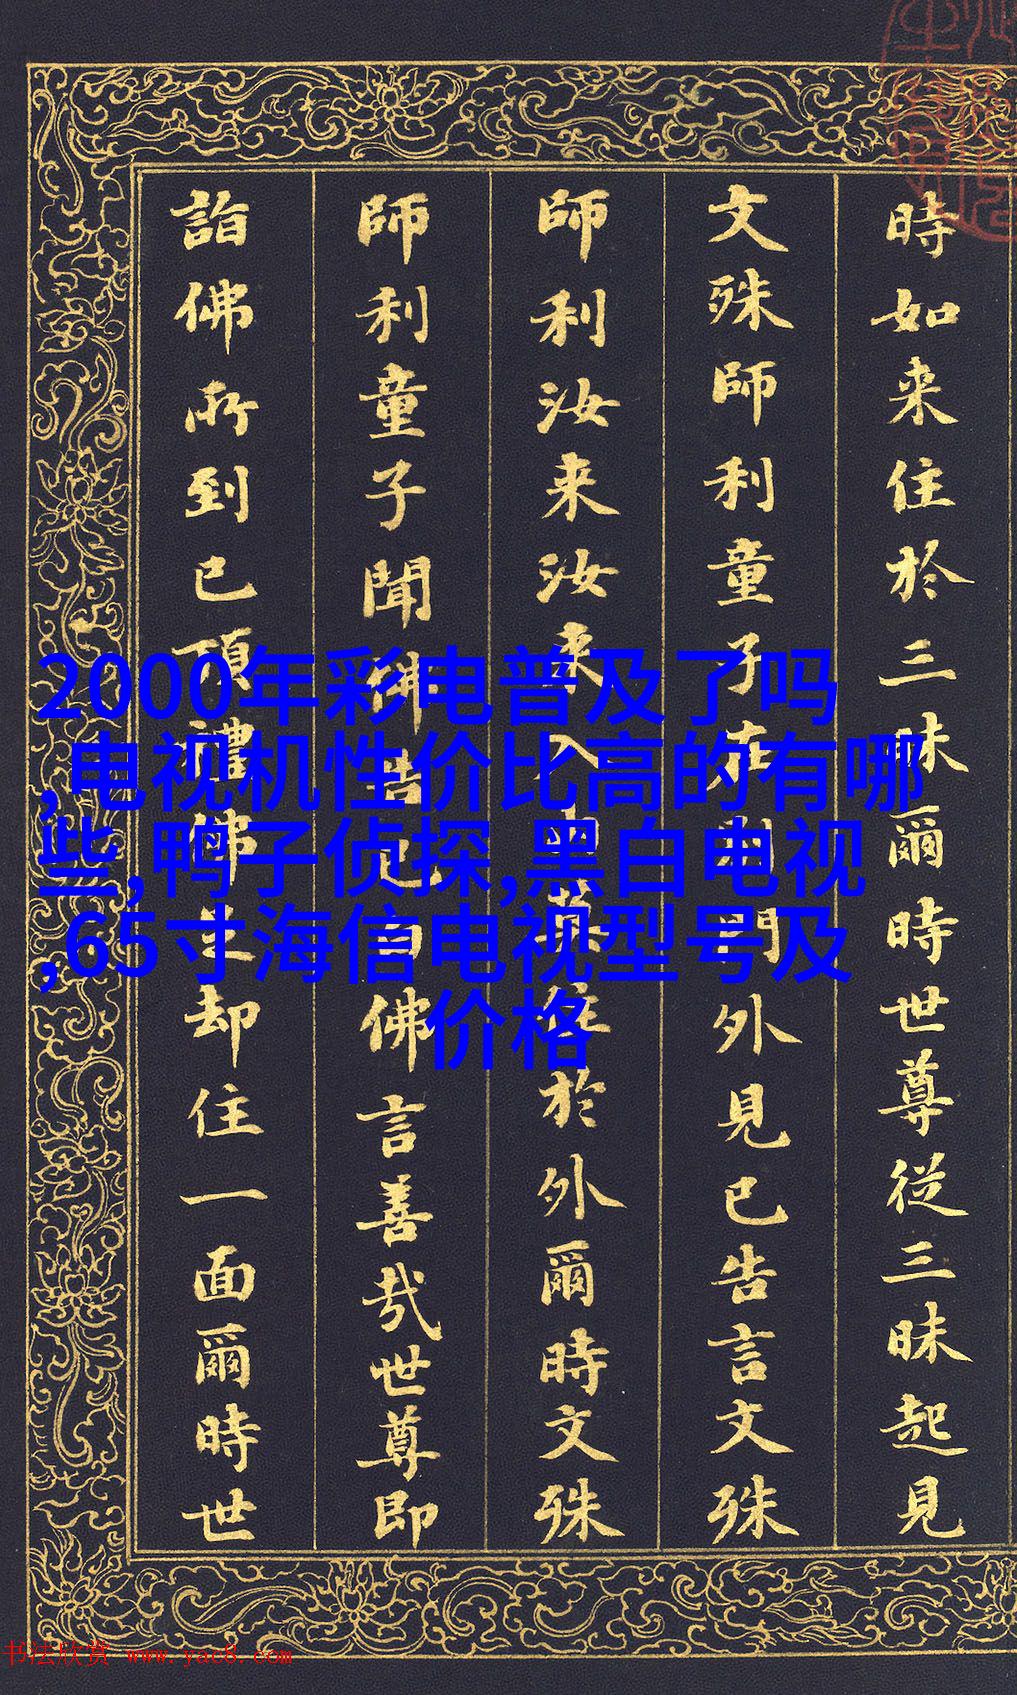 時如来住於三昧爾時世尊従三昧起見
文殊師利童子在門外見已告言文殊
師利汝来汝来入中莫住於外爾時文殊
師利童子聞佛告已白佛言善哉世尊即
詣佛所到已頂禮佛足却住一面爾時世
2000年彩电普及了吗
,电视机性价比高的有哪
些,鸭子侦探,黑白电视
,65寸海信电视型号及
价格
书法欣赏 www.yac8.com